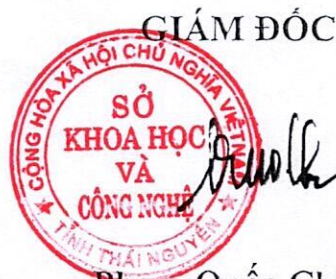 GIÁM ĐỐC
CỘNG HÒA XÃ HỘI CHỦ NGHĨA VIỆT NAM
SỞ
KHOA HỌC
VÀ
CÔNG NGHỆ
TỈNH THÁI NGUYÊN
Quốc